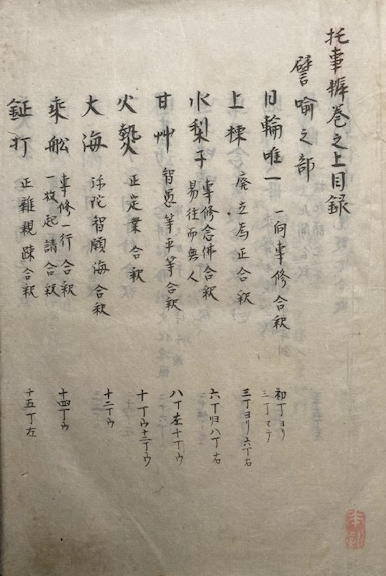 托事辨巻之上目録
譬喩之部
日輪唯一 一向専修合釈 初丁ヨリ三丁マテ
上棟 廃立為正合釈 三丁ヨリ六丁右
水梨子 専修念佛合釈 易往而無人 六丁ヨリ八丁右
甘艸 智愚等平等合釈 八丁左十丁ウ
火熱 正定業合釈 十丁ウ十二丁ウ
大海 弥陀智願海合釈 十二丁ウ
乗舩 専修一行合釈 一枚起請合釈 十四丁ウ
鉦打 正雑親疎合釈 十五丁左